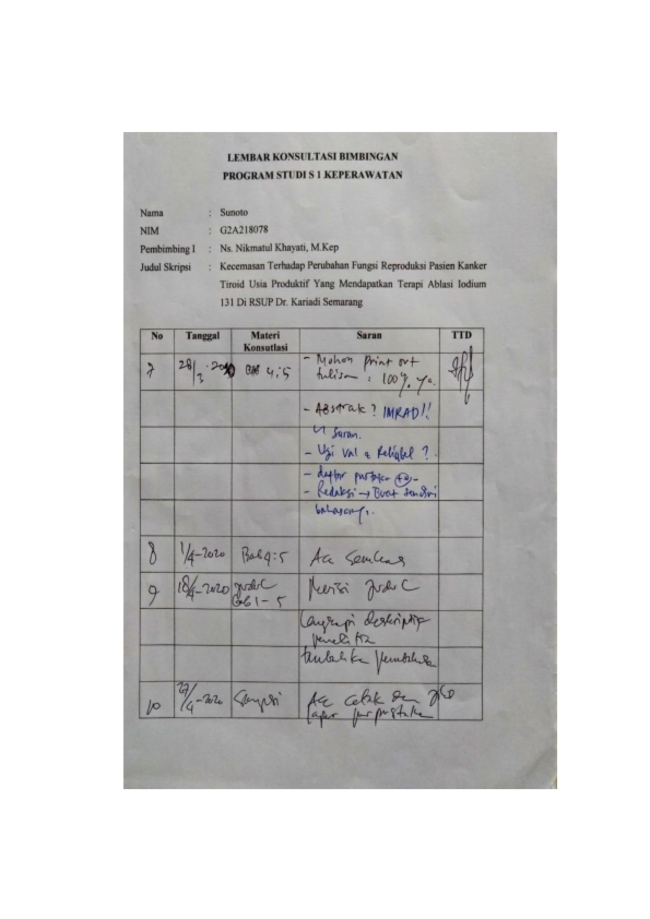 LEMBAR KONSULTASI BIMBINGAN
PROGRAM STUDI S 1 KEPERAWATAN
Nama : Sunoto
NIM : G2A218078
Pembimbing I : Ns. Nikmatul Khayati, M.Kep
Judul Skripsi : Kecemasan Terhadap Perubahan Fungsi Reproduksi Pasien Kanker
Tiroid Usia Produktif Yang Mendapatkan Terapi Ablasi Iodium
131 Di RSUP Dr. Kariadi Semarang
No Tanggal Materi Konsutlasi Saran TTD
7 28/3-2020 BAB 4:5 - Mohon print out
tulisan : 100% ya.
- Abstrak? IMRAD!!
Saran.
- Uji Val & Reliabel ?
- daftar pustaka
- Redaksi → Buat sendiri
bahasanya.
8 1/4-2020 Bab 4:5 Acc Semhas
9 18/4-2020 Judul Revisi Judul
Bab 1 - 5
Lengkapi deskriptif
penelitian
tambahkan pembahasan
10 27/4-2020 Skripsi Acc cetak dan
perpustakaan